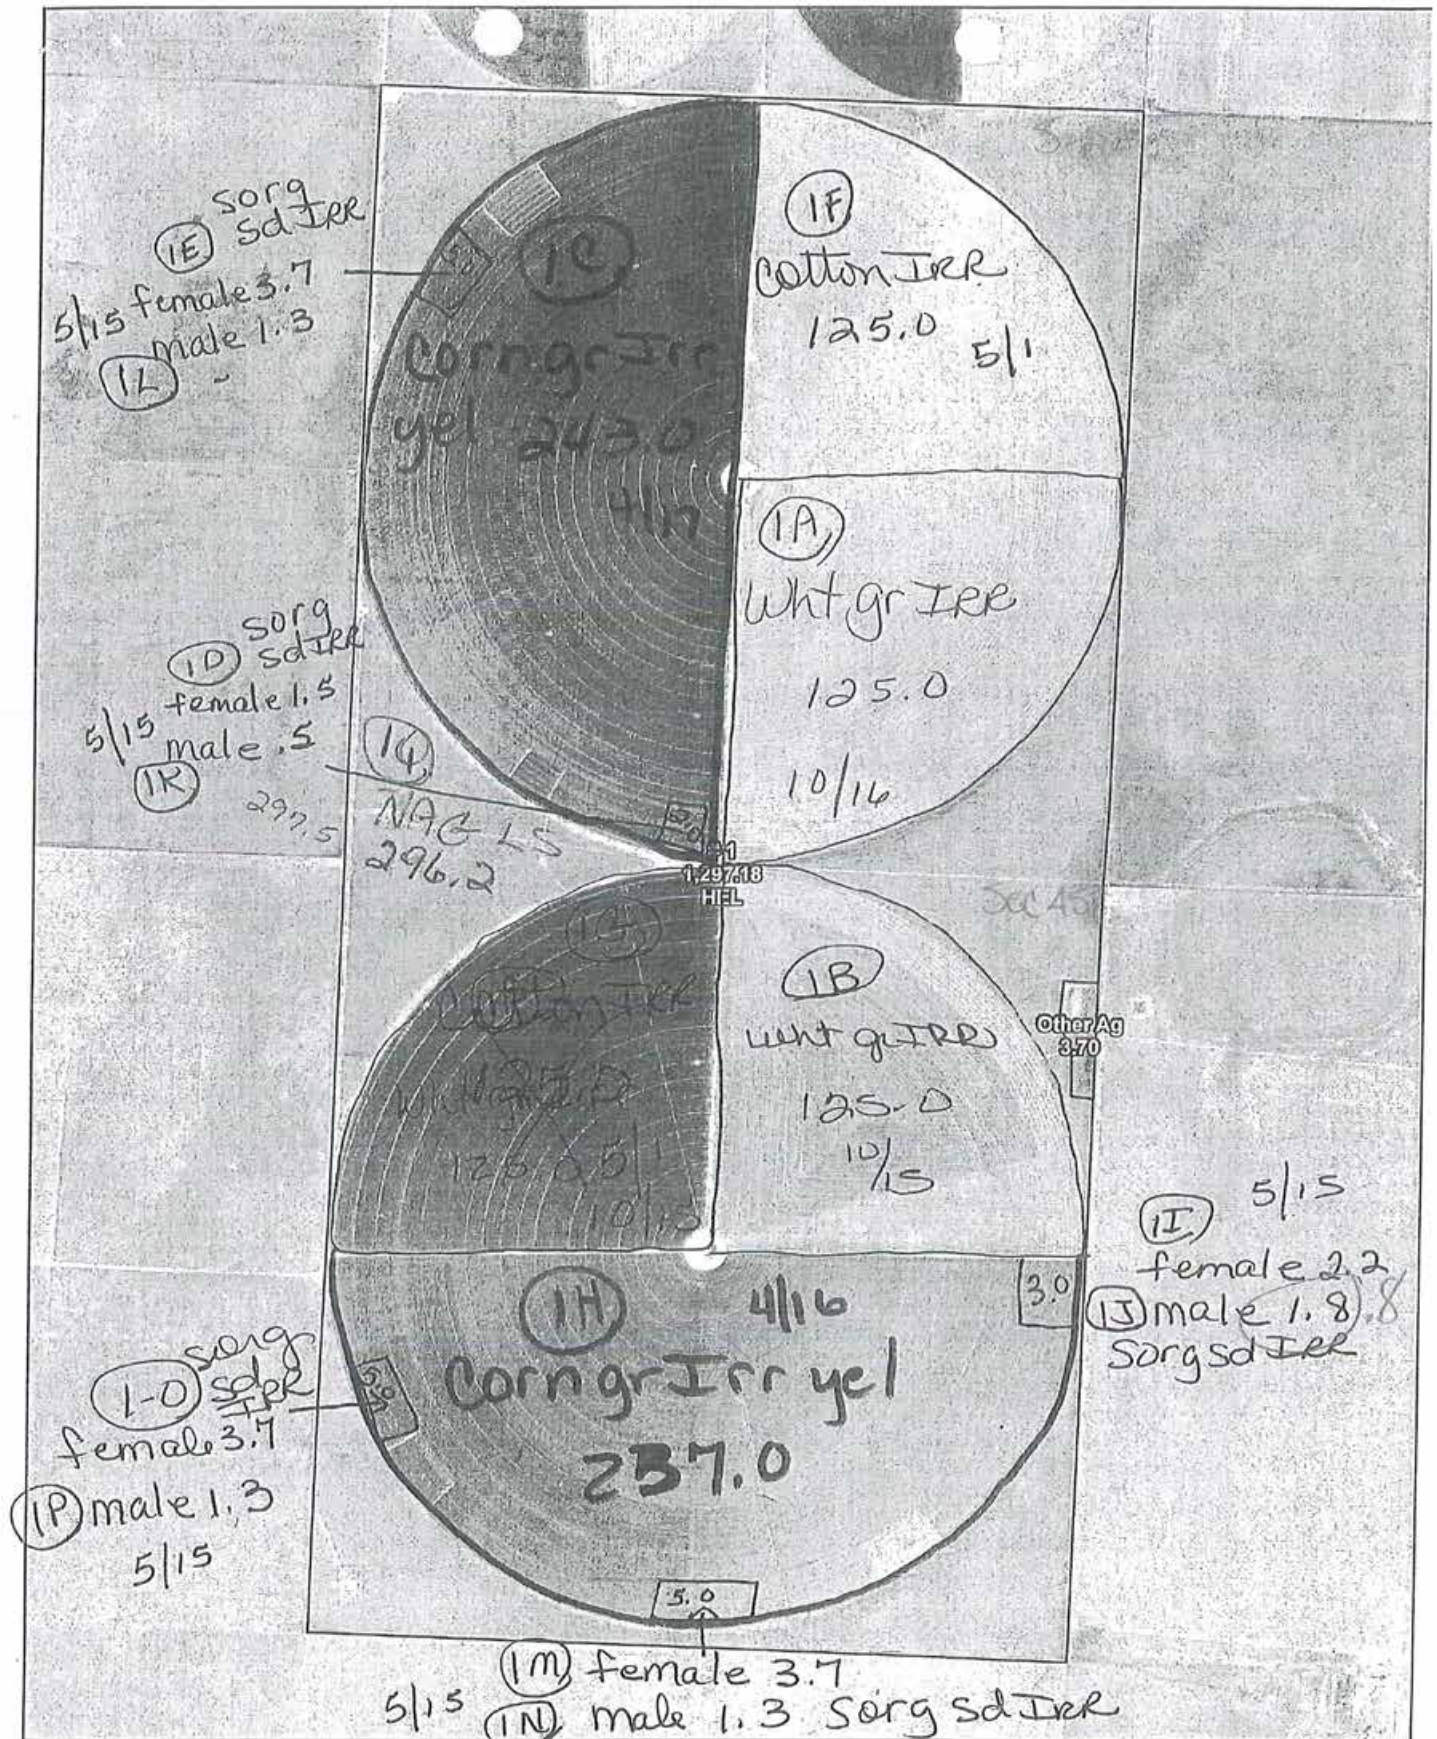 1E sorg
sd IRR
5/15 female 3.7
male 1.3
1L
1C
5.0
Corn gr Irr
yel 243.0
1F
Cotton IRR
125.0
5/1
1A
Wht gr IRR
125.0
10/16
sorg
1D sd IRR
female 1.5
5/15 male .5
1K
297.5
NAG LS
296.2
2.0
1,297.18
HEL
Cotton IRR
125.0
5/1
10/15
1B
Wht gr IRR
125.0
10/15
Other Ag
3.70
5/15
1I
female 2.2
1J male 1.8 .8
Sorg sd IRR
3.0
1H 4/16
Corn gr Irr yel
237.0
sorg
1-O sd
IRR
female 3.7
1P male 1.3
5/15
5.0
5.0
1M female 3.7
5/15 1N male 1.3 Sorg sd IRR